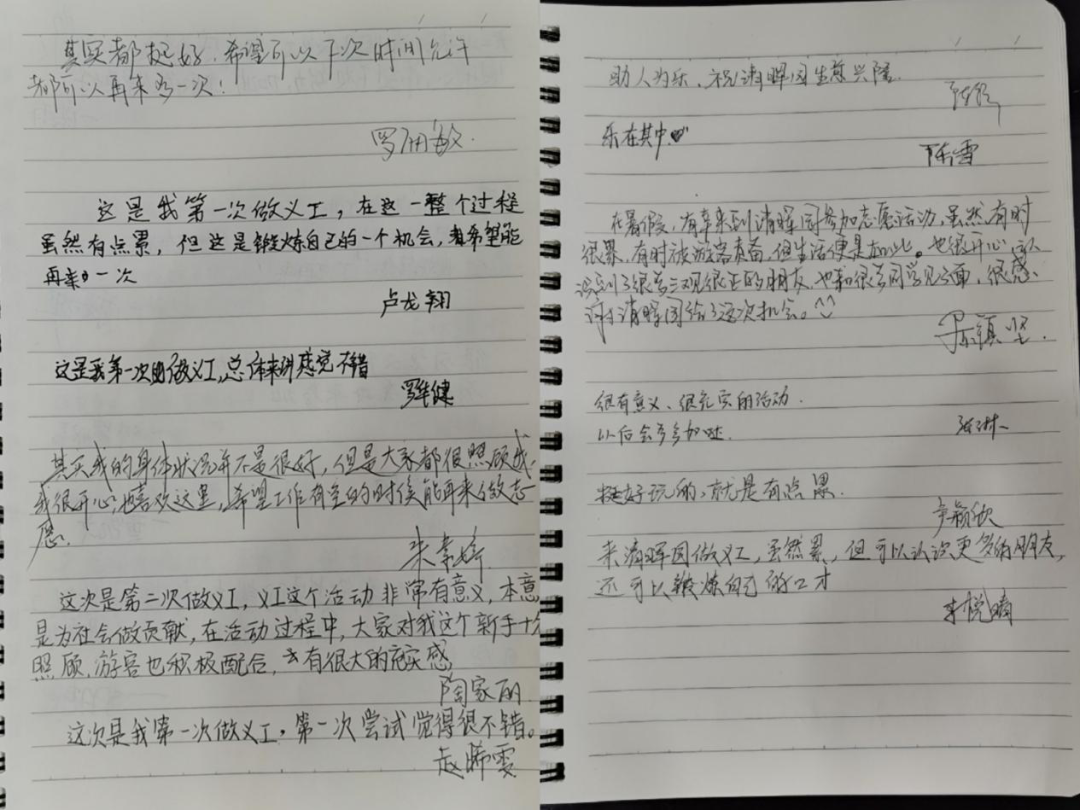 其实都挺好,希望可以下次时间允许
都可以再来多一次!
罗敏
这是我第一次做义工,在这一整个过程
虽然有点累,但这是锻炼自己的一个机会,希望能
再来一次
卢龙翔
这是我第一次做义工,总体来讲感觉不错
健
其实我的身体状况并不是很好,但是大家都很照顾我,
我很开心,也喜欢这里,希望工作有空的时侯能再来做志
愿。
朱婷
这次是第二次做义工,义工这个活动非常有意义,本意
是为社会做贡献,在活动过程中,大家对我这个新手十分
照顾,游客也积极配合,有很大的充实感
陶家丽
这次是我第一次做义工,第一次尝试觉得很不错。
赵晞雯
助人为乐,祝清晖园生意兴隆
乐在其中
陈雪
在暑假,有幸来到清晖园参加志愿活动,虽然有时
很累,有时被游客责备,但生活便是如此。也很开心可以
认识到了很多三观很正的朋友,也和很多同学见了面,很感
谢清晖园给了这次机会。^^
坚
很有意义、很充实的活动.
以后会多多参加哒.
挺好玩的,就是有点累.
颖欣
来清晖园做义工,虽然累,但可以认识更多的朋友,
还可以锻炼自己的口才
晴